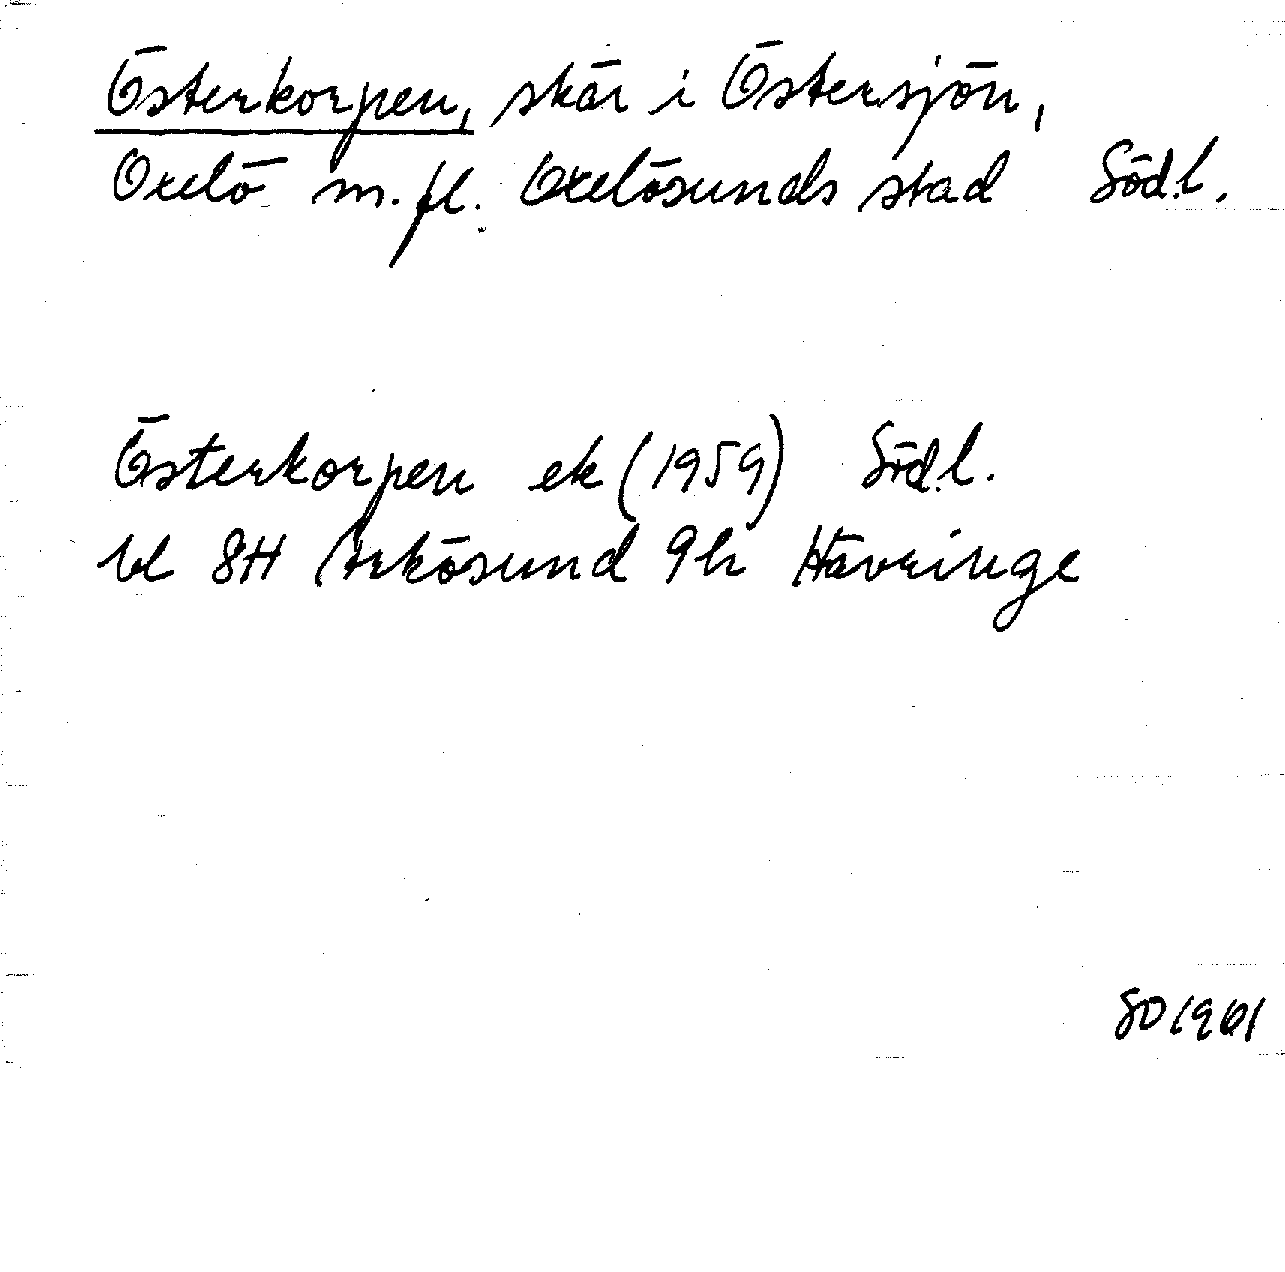 Österkorpen, skär i Östersjön,
Oxelö m.fl. Oxelösunds stad Södl.
Österkorpen ek (1959) Södl.
bl 8H Arkösund 9h Hävringe
SO 1961